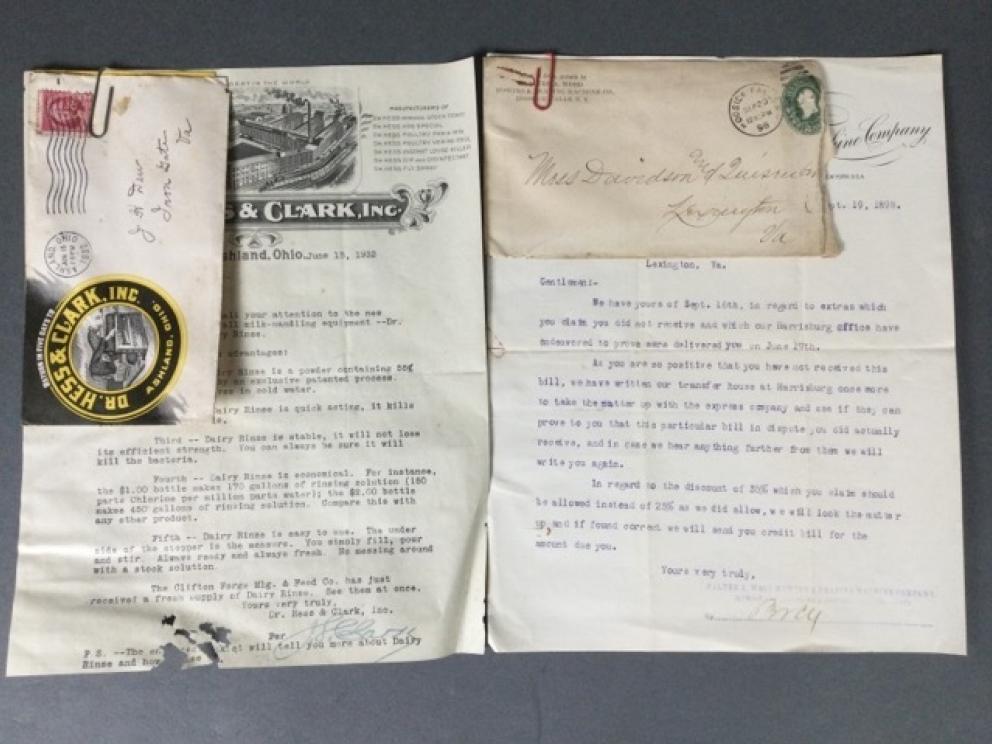 J H Dew
Iron Gate
Va
ASHLAND, OHIO
DR. HESS & CLARK, INC.
ASHLAND, OHIO.
RETURN IN FIVE DAYS TO
IN THE WORLD
MANUFACTURERS OF
DR. HESS POULTRY PAN-A-MIN
DR. HESS INSTANT LOUSE KILLER
DR. HESS DIP AND DISINFECTANT
DR. HESS FLY SPRAY
S & CLARK, INC.
shland, Ohio. June 15, 1932
your attention to the new
all milk-handling equipment --Dr.
Rinse.
advantages:
Rinse is a powder containing
by an exclusive patented process.
in cold water.
Dairy Rinse is quick acting, it kills
Third -- Dairy Rinse is stable, it will not lose
its efficient strength. You can always be sure it will
kill the bacteria.
Fourth -- Dairy Rinse is economical. For instance,
the $1.00 bottle makes 175 gallons of rinsing solution (150
parts Chlorine per million parts water); the $2.00 bottle
makes 450 gallons of rinsing solution. Compare this with
any other product.
Fifth -- Dairy Rinse is easy to use. The under
side of the stopper is the measure. You simply fill, pour
and stir. Always ready and always fresh. No messing around
with a stock solution
The Clifton Forge Mfg. & Feed Co. has just
received a fresh supply of Dairy Rinse. See them at once.
Yours very truly,
Dr. Hess & Clark, Inc.
Per
P S --The will tell you more about Dairy
Rinse and how
HOOSICK FALLS
98
Moss Davidson
Lexington
Va
Company
pt. 19, 1898.
Lexington, Va.
Gentlemen:-
We have yours of Sept. 16th, in regard to extras which
you claim you did not receive and which our Harrisburg office have
endeavored to prove were delivered you on June 17th.
As you are so positive that you have not received this
bill, we have written our transfer House at Harrisburg once more
to take the matter up with the express company and see if they can
prove to you that this particular bill in dispute you did actually
receive, and in case we hear anything farther from them we will
write you again.
In regard to the discount of 35% which you claim should
be allowed instead of 25% as we did allow, we will look the matter
up, and if found correct we will send you credit bill for the
amount due you.
Yours very truly,